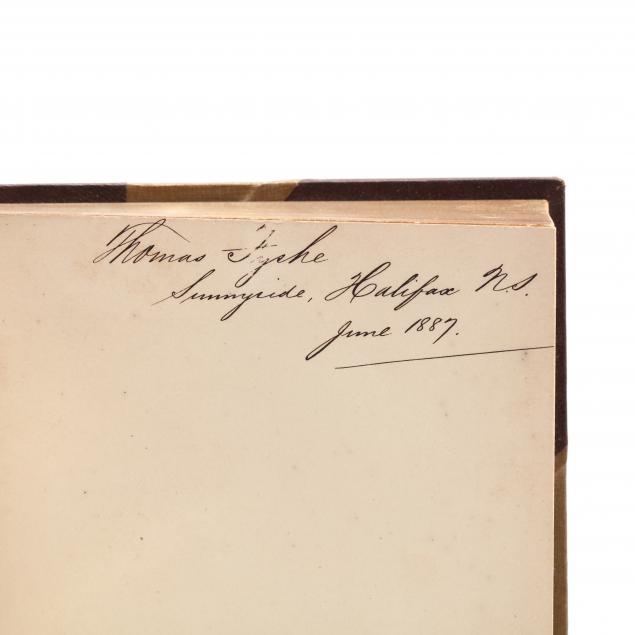 Thomas Fyshe
Sunnyside, Halifax N.S.
June 1887.